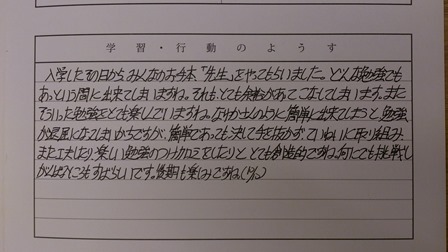 学習・行動のようす
入学したその日から、みんなのお手本、「先生」をやってもらいました。どんな勉強でも
あっという間に出来てしまいますね。それも、とても余裕があってこなしてしまいます。また
そういった勉強をとても楽しんでいますね。なりかさんのように簡単に出来てしまうと、勉強
が退屈になってしまいがちですが、簡単であっても決して手を抜かずていねいに取り組み
また工夫したり、楽しい勉強のつけ加えをしたりと、とても創造的ですね。何にでも挑戦し
がんばるところもすばらしいです。後期も楽しみですね。